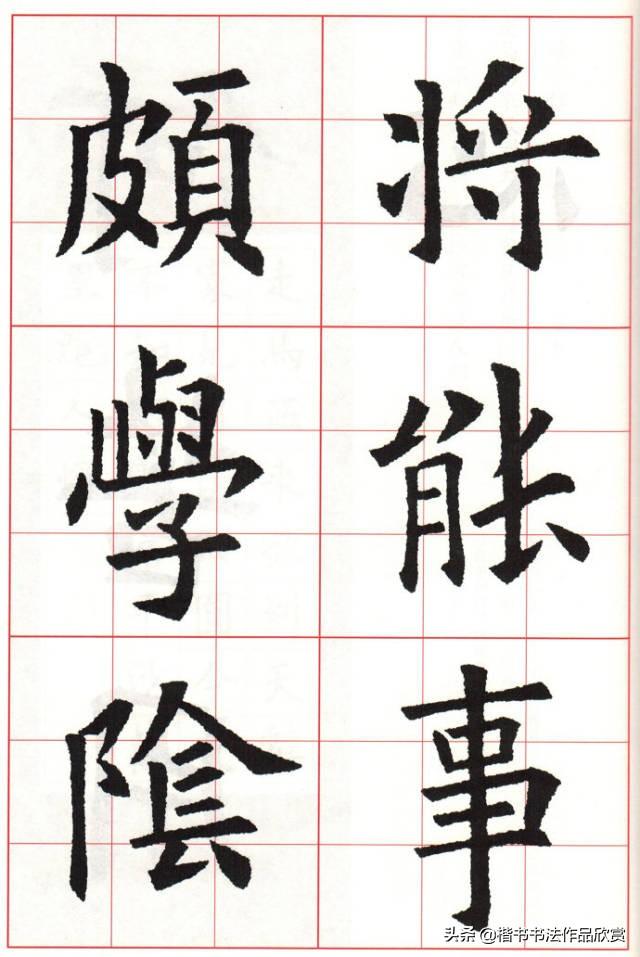 将能事
頗學陰
头条 @楷书书法作品欣赏